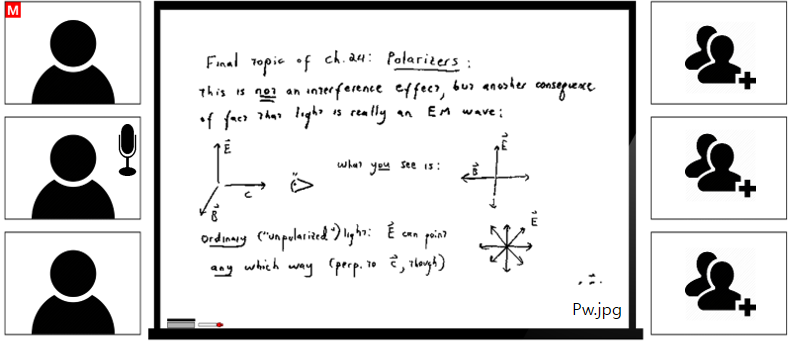 M
Final Topic of ch.24: Polarizers:
This is not an interference effect, but another consequence
of fact that light is really an EM wave:
E
what you see is:
E
B
c
B
E
ordinary ("unpolarized") light: E can point
any which way (perp. to c, though)
Pw.jpg